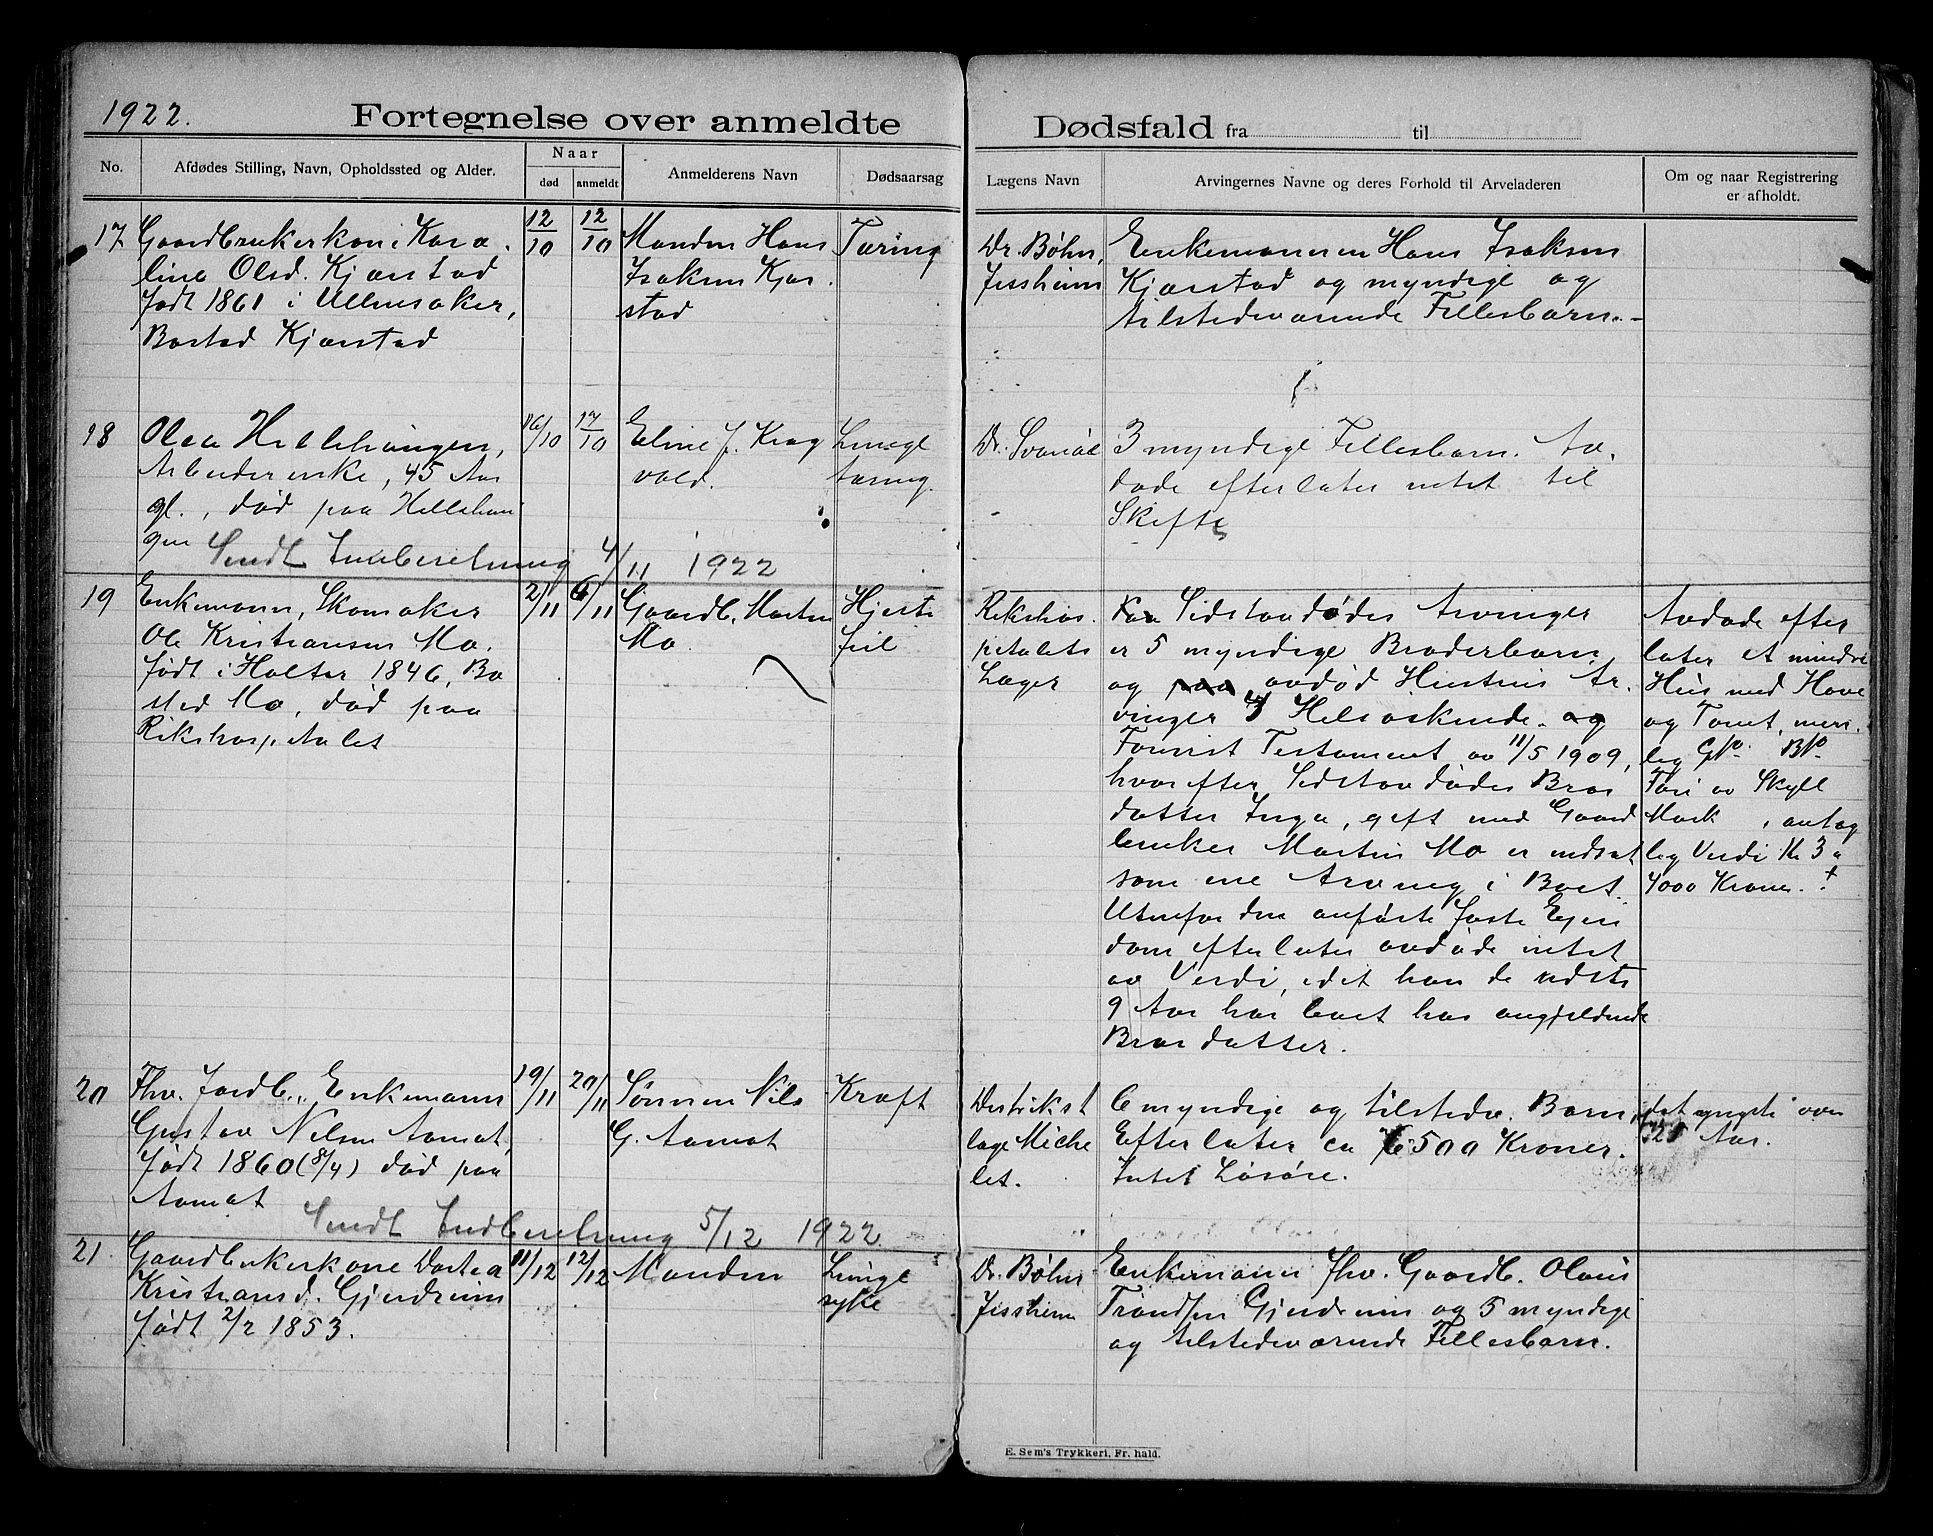 1922.
Fortegnelse over anmeldte Dødsfald fra til
No.
Afdødes Stilling, Navn, Opholdssted og Alder.
Naar
død
anmeldt
Anmelderens Navn
Dødsaarsag
Lægens Navn
Arvingernes Navne og deres Forhold til Arveladeren
Om og naar Registrering
er afholdt.
17
Gaardbrukerkone Kara
line Olsd. Kjærstad
født 1861 i Ullensaker,
Bosted Kjærstad
12/10
12/10
Manden Hans
Isaksen Kjær
stad
Tæring
Dr. Bøhn,
Jessheim
Enkemannen Hans Isaksen
Kjærstad og myndige og
tilstedeværende Fællesbarn.-
18
Olea Hellehaugen,
Arbeiderenke, 45 Aar
gl., død paa Hellehau
gen
16/10
17/10
Eline J. Krog
vold.
Lunge
tæring.
Dr. Svanøe
3 myndige Fællesbarn. Av
døde efterlater intet til
Skifte
Sendt Indberetning 4/11 1922
19
Enkemann, Skomaker
Ole Kristiansen Mo.
født i Holter 1846, Bo
sted Mo, død paa
Rikshospitalet
2/11
6/11
Gaardb. Martin
Mo.
Hjerte
feil
Rikshos
pitalets
Læger
Sidstavdødes Arvinger
er 5 myndige Broderbarn
og paa avdød Hustrus Ar
vinger 3 Helsøskende. og
Forevist Testament av 11/5 1909,
hvorefter Sidstavdødes Bror
datter Inga, gift med Gaard
bruker Martin Mo er indsat
som ene Arving i Boet.
Utenfor den anførte faste Eien
dom efterlater avdøde intet
av Verdi, idet han de sidste
9 Aar har boet hos angjældende
Brordatter.
Avdøde efter
later et mindre
Hus med Have
og Tomt,
leg Gno. Bno.
av Skyld
Mark , antag
lig Verdi Kr 3 a
4000 Kroner.
20
Fhv. Jordb., Enkemann
Gustav Nilsen Aamot,
født 1860 (8/4) død paa
Aamot
19/11
20/11
Sønnen Nils
G. Aamot
Kræft
Distrikst
læge Miche
let.
6 myndige og tilstedev. Barn,
Efterlater ca 6500 Kroner.
Intet Løsøre.
det yngste over
21 Aar.
Sendt Indberetning 5/12 1922
21
Gaardbrukerkone Dortea
Kristiansd. Gjendrum
født 2/2 1853.
11/12
12/12
Manden
Lunge
syke
Dr. Bøhn
Jessheim
Enkemann fhv. Gaardb. Olaus
Trondsen Gjendrum og 5 myndige
og tilstedeværende Fællesbarn.
E. Sem's Trykkeri, Fr. hald.